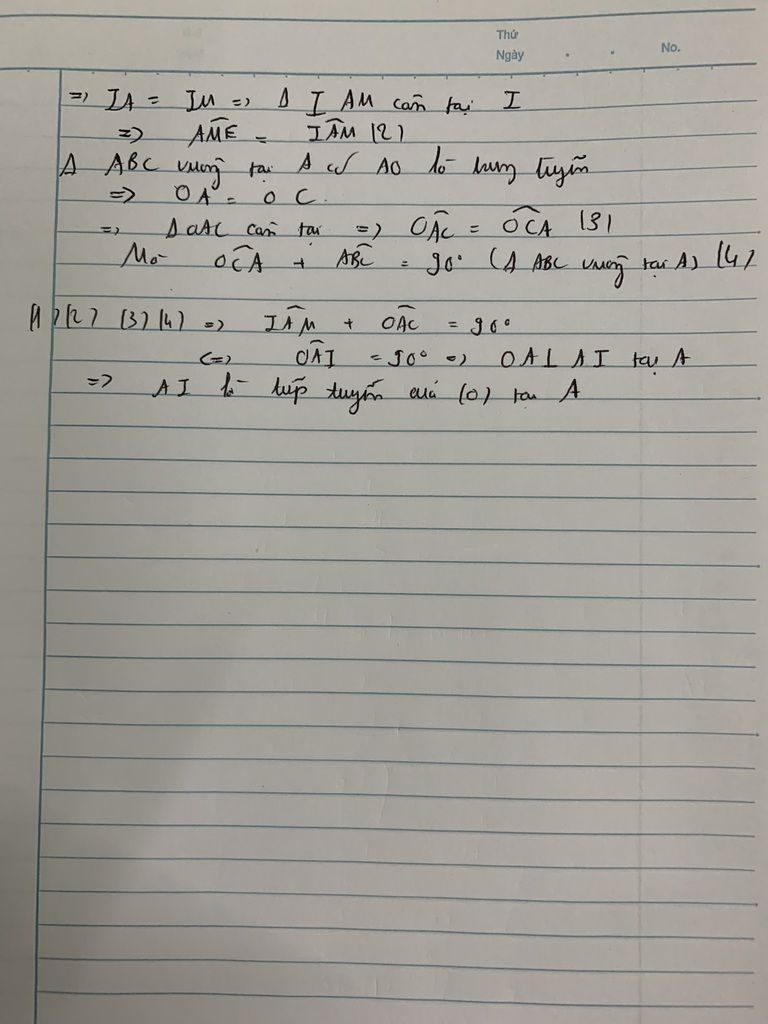 Thứ
Ngày . . No.
=> IA = IM => Δ I AM cân tại I
=> AM̂E = IÂM (2)
Δ ABC vuông tại A có AO là trung tuyến
=> OA = OC.
=> Δ OAC cân tại => OÂC = OĈA (3)
Mà OĈA + AB̂C = 90° (Δ ABC vuông tại A) (4)
(1) (2) (3) (4) => IÂM + OÂC = 90°
<=> OÂI = 90° => OA ⊥ AI tại A
=> AI là tiếp tuyến của (O) tại A